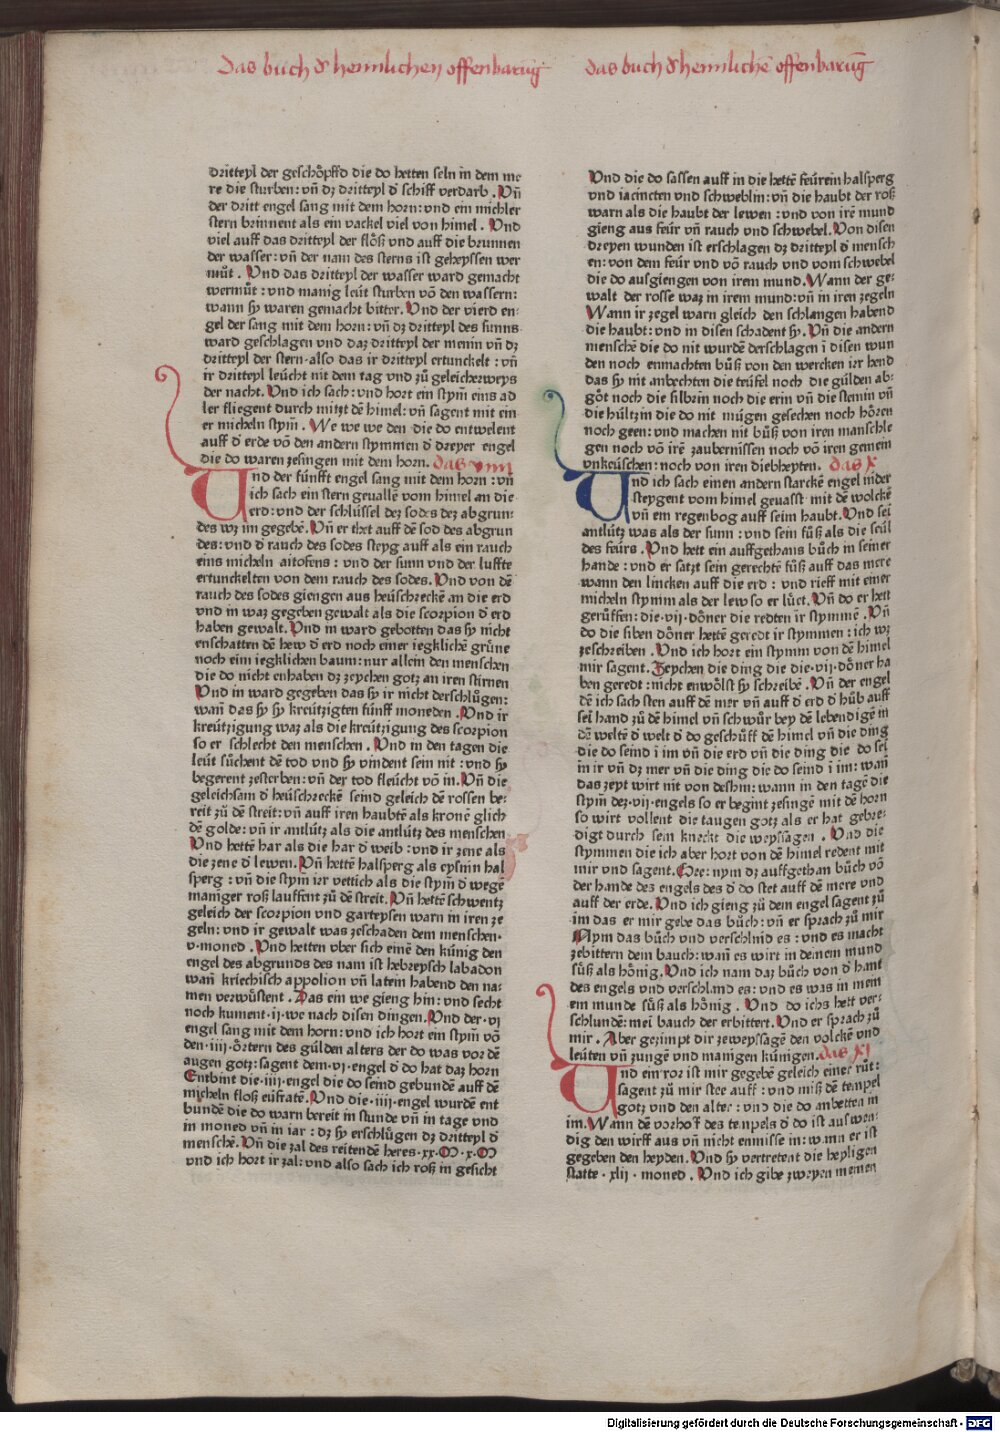 das buch d᷑ heimlichen offenbarūg
das buch d᷑ heimlichē offenbarūg
dritteyl der geschoͤpffd die do hetten seln in dem me
re die sturben: vñ dz dritteyl d᷑ schiff verdarb. Vñ
der dritt engel sang mit dem horn: vnd ein michler
stern brinnent als ein vackel viel von himel. Vnd
viel auff das dritteyl der floͤß vnd auff die brunnen
der wasser: vñ der nam des sterns ist geheyssen wer
muͤt. Vnd das dritteyl der wasser ward gemacht
wermuͤt: vnd manig leüt sturben vō den wassern:
wann sy waren gemacht bitter. Vnd der vierd en-
gel der sang mit dem horn: vñ dz dritteyl des sunns
ward geschlagen vnd daz dritteyl der menin vñ dz
dritteyl der stern·also das ir dritteyl ertunckelt: vñ
ir dritteyl leücht nit dem tag vnd zuͤ geleicherweys
der nacht. Vnd ich sach: vnd hort ein stym̄ eins ad
ler fliegent durch mitzt dē himel: vñ sagent mit ein
er micheln stym̄. We we we den die do entwelent
auff d᷑ erde vō den andern stymmen d᷑ dreyer engel
die do waren zesingen mit dem horn. das viiij
Und der fünfft engel sang mit dem horn: vñ
ich sach ein stern geuallē vom himel an die
erd: vnd der schlüssel dez sodes dez abgrun-
des wz im gegebē. Vñ er thet auff dē sod des abgrun
des: vnd d᷑ rauch des sodes steyg auff als ein rauch
eins micheln aitofens: vnd der sunn vnd der luffte
ertunckelten von dem rauch des sodes. Vnd von dē
rauch des sodes giengen aus heüschreckē an die erd
vnd in waz gegeben gewalt als die scorpion d᷑ erd
haben gewalt. Vnd in ward gebotten das sy nicht
enschatten dē hew d᷑ erd noch einer iegklichē gruͤne
noch eim iegklichen baum: nur allein den menschen
die do nicht enhaben dz zeychen gotz an iren stirnen
Vnd in ward gegeben das sy ir nicht derschluͤgen:
wañ das sy sy kreützigten fünff moneden. Vnd ir
kreützigung waz als die kreützigung des scorpion
so er schlecht den menschen. Vnd in den tagen die
leüt suͤchent dē tod vnd sy vindent sein nit: vnd sy
begerent zesterben: vñ der tod fleücht vō in. Vñ die
geleichsam d᷑ heüschreckē seind geleich dē rossen be-
reit zuͤ dē streit: vñ auff iren haubtē als kronē glich
dē golde: vñ ir antlütz als die antlütz des menschen
Vnd hettē har als die har d᷑ weib: vnd ir zene als
die zene d᷑ lewen. Vñ hettē halsperg als eysnin hal
sperg: vñ die stym̄ irr vettich als die stym̄ d᷑ wegē
maniger roß lauffent zuͤ dē streit. Vñ hettē schwentz
geleich der scorpion vnd garteysen warn in iren ze
geln: vnd ir gewalt was zeschaden dem menschen·
v·moned. Vnd hetten vber sich einē den künig den
engel des abgrunds des nam ist hebreysch labadon
wañ kriechisch appolion vñ latein habend den na-
men verwuͤstent. Das ein we gieng hin: vnd secht
noch kument·ij·we nach disen dingen. Vnd der·vj
engel sang mit dem horn: vnd ich hort ein stym̄ vō
den·iiij·oͤrtern des gülden alters der do was vor dē
augen gotz: sagent dem·vj·engel d᷑ do hat daz horn
Entbint die·iiij·engel die do seind gebundē auff dē
micheln floß eüfratē. Vnd die·iiij·engel wurdē ent
bundē die do warn bereit in stunde vñ in tage vnd
in moned vñ in iar: dz sy erschluͤgen dz dritteyl d᷑
menschē. Vñ die zal des reitendē heres·xx·M·x·M
vnd ich hort ir zal: vnd also sach ich roß in gesicht
Vnd die do sassen auff in die hettē feürein halsperg
vnd iacincten vnd schweblin: vñ die haubt der roß
warn als die haubt der lewen: vnd von irē mund
gieng aus feür vñ rauch vnd schwebel. Von disen
dreyen wunden ist erschlagen dz dritteyl d᷑ mensch
en: von dem feür vnd vō rauch vnd vom schwebel
die do ausgiengen von irem mund. Wann der ge-
walt der rosse waz in irem mund: vñ in iren zegeln
Wann ir zegel warn gleich den schlangen habend
die haubt: vnd in disen schadent sy. Vñ die andern
menschē die do nit wurdē derschlagen ī disen wun
den noch enmachten buͤß von den wercken irr hend
das sy nit anbechten die teüfel noch die gülden ab-
goͤt noch die silbrin noch die erin vñ die steinin vñ
die hültzin die do nit mügen gesechen noch hoͤren
noch geen: vnd machen nit buͤß von iren manschle
gen noch vō irē zaubernissen noch vō iren gemein
vnkeüschen: noch von iren diebheyten. das X
Und ich sach einen andern starckē engel nider
steygent vom himel geuasst mit dē wolckē
vñ ein regenbog auff seim haubt. Vnd sei
antlütz was als der sunn: vnd sein fuͤß als die seül
des feürs. Vnd hett ein auffgethans buͤch in seiner
hande: vnd er satzt sein gerechtē fuͤß auff das mere
wann den lincken auff die erd: vnd rieff mit einer
micheln stymm als der lew so er luͤet. Vñ do er hett
geruͤffen: die·vij·doͤner die redten ir stymmē. Vñ
do die siben doͤner hettē geredt ir stymmen: ich wz
zeschreiben. Vnd ich hort ein stymm von dē himel
mir sagent. Zeychen die ding die die·vij·doͤner ha
ben geredt: nicht enwoͤlst sy schreibē. Vñ der engel
dē ich sach sten auff dē mer vñ auff d᷑ erd d᷑ huͤb auff
sei hand zuͤ dē himel vñ schwuͤr bey dē lebendigē in
dē weltē d᷑ welt d᷑ do geschuͤff dē himel vñ die ding
die do seind ī im vñ die erd vñ die ding die do sei
in ir vñ dz mer vñ die ding die do seind ī im: wañ
das zeyt wirt nit von deshin: wann in den tagē die
stym̄ dez·vij·engels so er begint zesingē mit dē horn
so wirt vollent die taugen gotz als er hat gebre-
digt durch sein knecht die weyssagen. Vnd die
stymmen die ich aber hort von dē himel redent mit
mir vnd sagent. Gee: nym dz auffgethan buͤch vō
der hande dez engels des d᷑ do stet auff dē mere vnd
auff der erde. Vnd ich gieng zuͤ dem engel sagent zuͤ
im das er mir gebe das buͤch: vñ er sprach zuͤ mir
Nym das buͤch vnd verschlind es: vnd es macht
zebittern dein bauch: wañ es wirt in deinem mund
suͤß als hoͤnig. Vnd ich nam daz buͤch von d᷑ hant
des engels vnd verschland es: vnd es was in mein
em munde suͤß als hoͤnig. Vnd do ichs hett ver-
schlundē: mei bauch der erbittert. Vnd er sprach zuͤ
mir. Aber gezimpt dir zeweyssagē den volckē vnd
leüten vñ zungē vnd manigen künigen. das XI
Und ein ror ist mir gegebē geleich einer ruͤt:
sagent zuͤ mir stee auff: vnd miß dē tempel
gotz vnd den alter: vnd die do anbetten in
im. Wann dē vorhoff des tempels d᷑ do ist auswen-
dig den wirff aus vñ nicht enmisse in: wann er ist
gegeben den heyden. Vnd sy vertretent die heyligen
statte·xlij·moned. Vnd ich gibe zweyen meinen
Digitalisierung gefördert durch die Deutsche Forschungsgemeinschaft - DFG